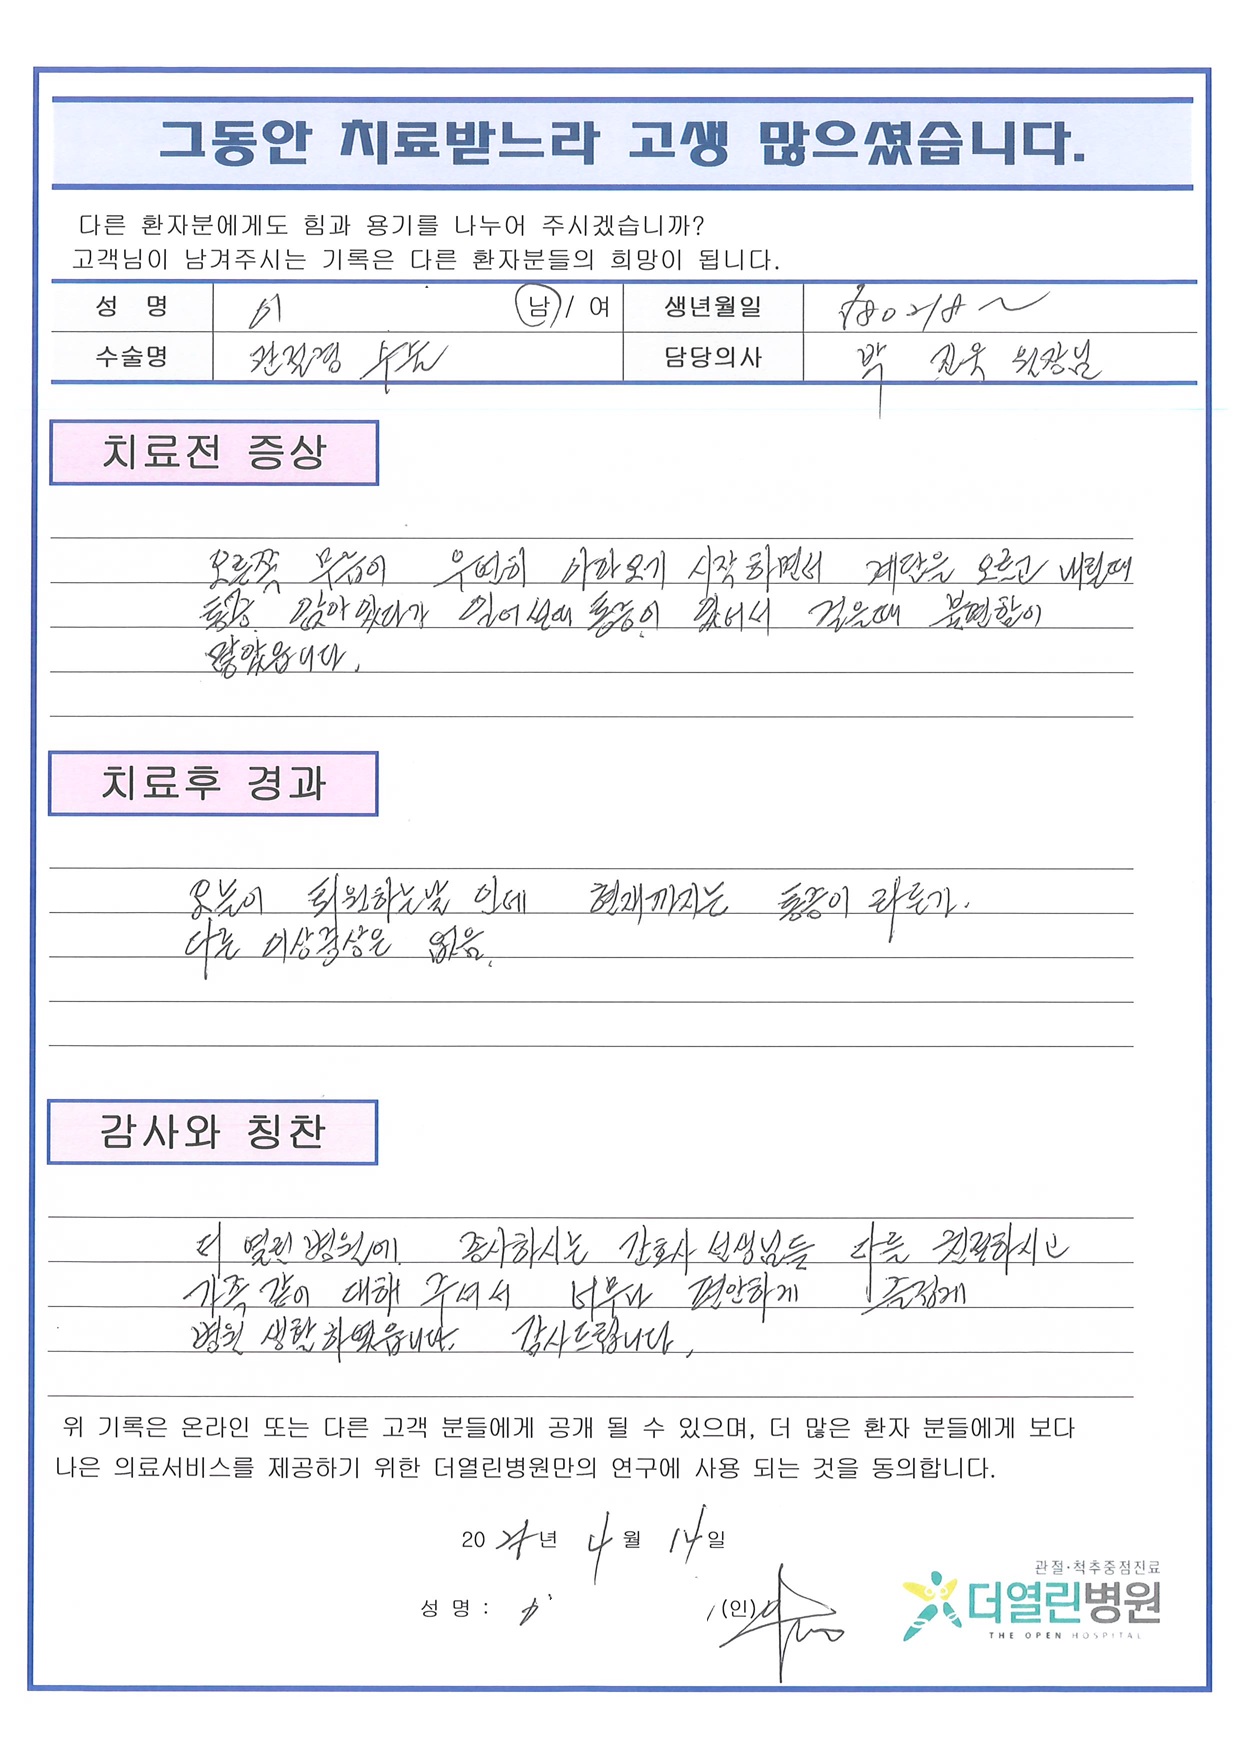 그동안 치료받느라 고생 많으셨습니다.
다른 환자분에게도 힘과 용기를 나누어 주시겠습니까?
고객님이 남겨주시는 기록은 다른 환자분들의 희망이 됩니다.
성 명 이 남 / 여 생년월일
수술명 관절경 수술 담당의사 박 진욱 원장님
치료전 증상
오른쪽 무릎이 우연히 아파오기 시작하면서 계단을 오르고 내릴때
통증. 앉아있다가 일어설때 통증이 있어서 걸을때 불편함이
많았읍니다.
치료후 경과
오늘이 퇴원하는날 인데 현재까지는 통증이 라든가.
다른 이상증상은 없음.
감사와 칭찬
더 열린병원에 종사하시는 간호사 선생님들 다들 친절하시고
가족같이 대해 주셔서 너무나 편안하게 즐겁게
병원 생활하였읍니다. 감사드립니다.
위 기록은 온라인 또는 다른 고객 분들에게 공개 될 수 있으며, 더 많은 환자 분들에게 보다
나은 의료서비스를 제공하기 위한 더열린병원만의 연구에 사용 되는 것을 동의합니다.
20 년 4 월 14 일
성 명 : (인)
관절·척추중점진료
더열린병원
THE OPEN HOSPITAL